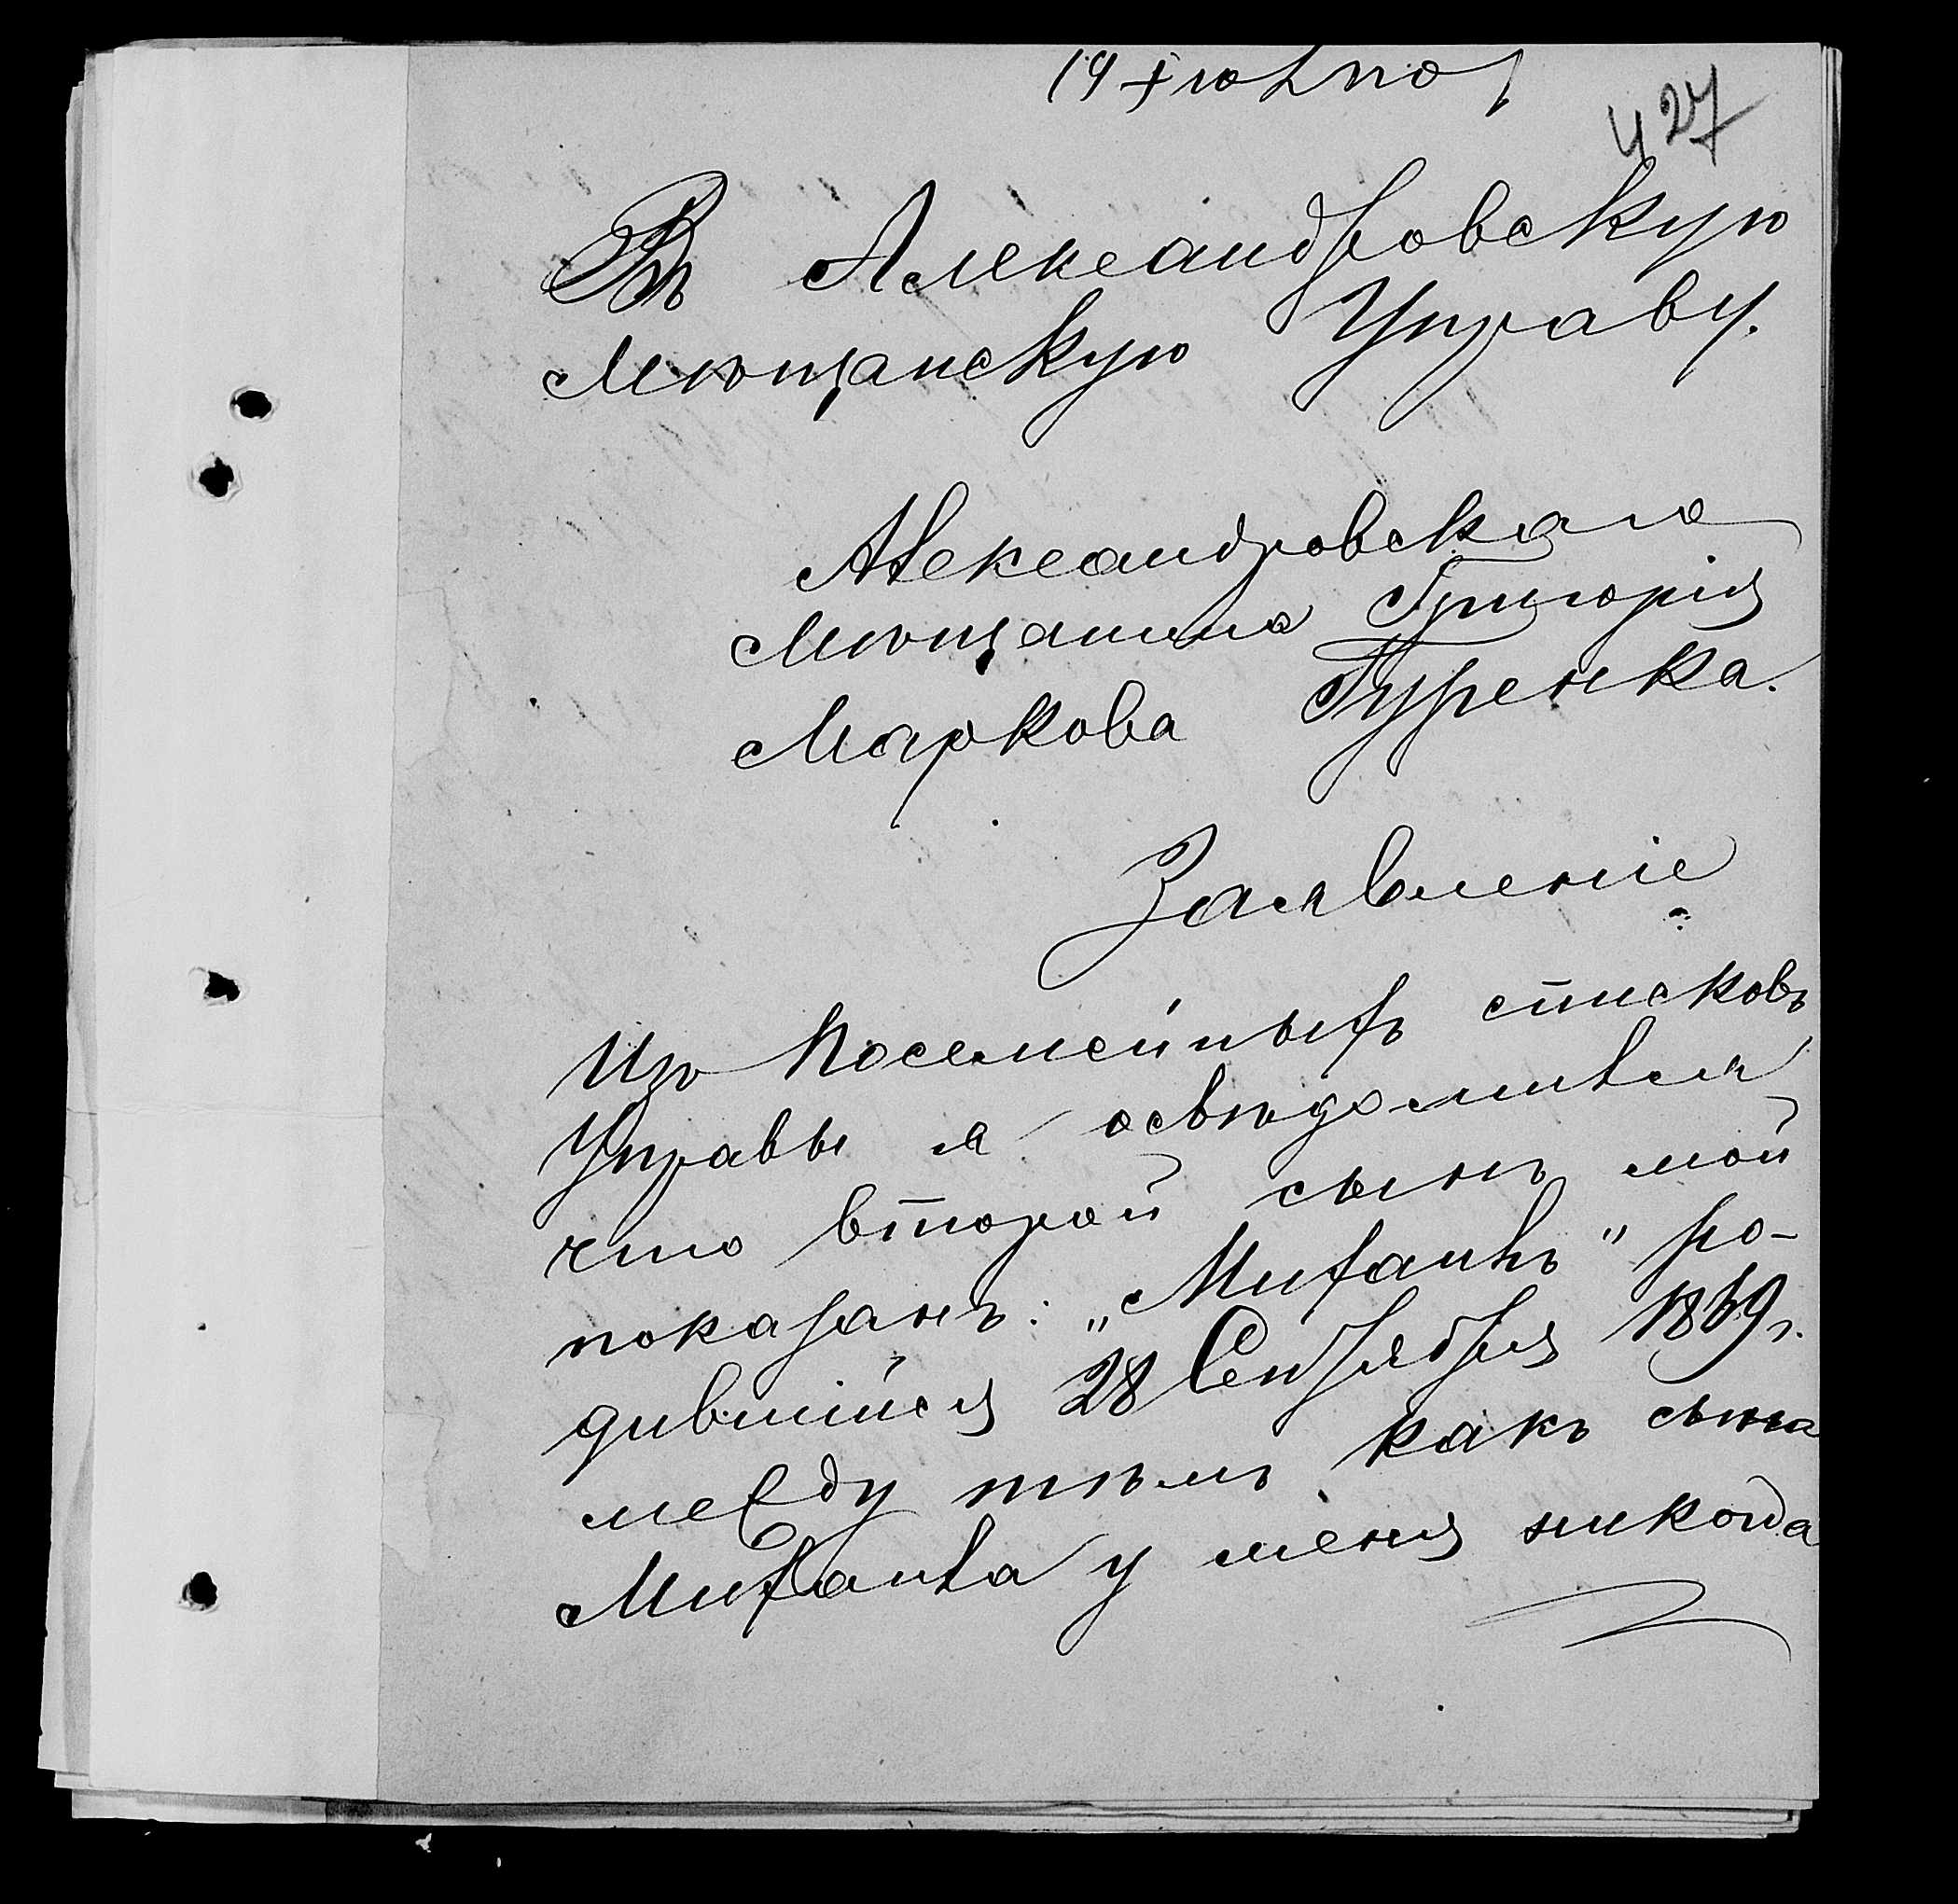 427
Въ Александровскую
Мѣщанскую Управу.
Александровскаго
Мѣщанина Григорія
Маркова Гуренка.
Заявленіе
Изъ посемейныхъ списковъ
Управы я освѣдомился
что второй сынъ мой
показанъ: „Михаилъ" ро-
дившійся 28 Сентября 1869 г.
между тѣмъ какъ сына
Михаила у меня никогда